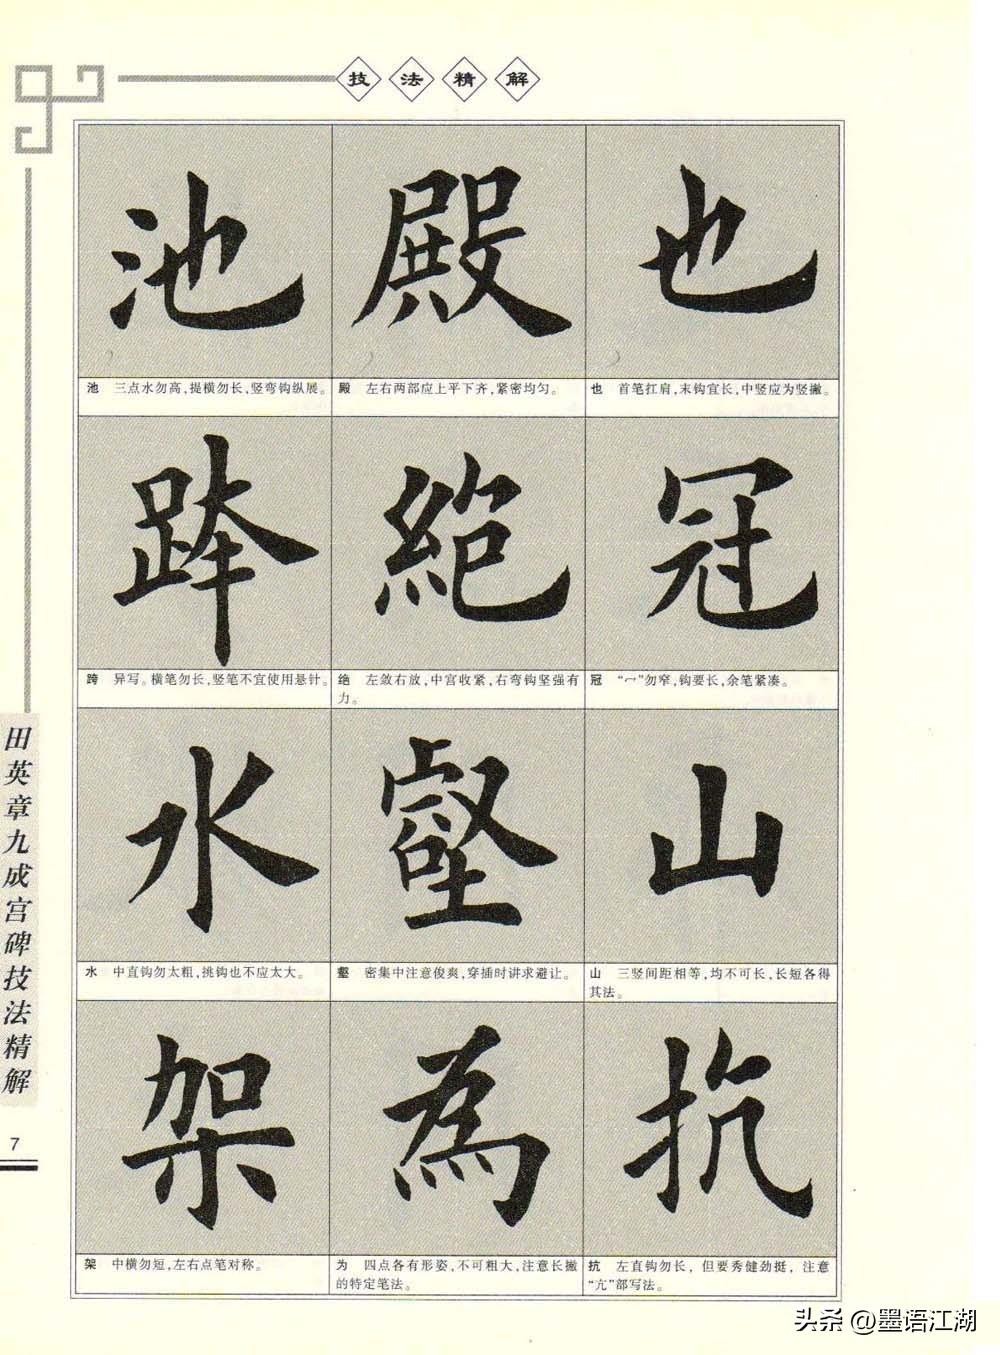 技法精解
池 殿 也
池 三点水勿高,提横勿长,竖弯钩纵展。
殿 左右两部应上平下齐,紧密均匀。
也 首笔扛肩,末钩宜长,中竖应为竖撇。
跨 絶 冠
跨 异写。横笔勿长,竖笔不宜使用悬针。
绝 左敛右放,中宫收紧,右弯钩坚强有
力。
冠 “冖”勿窄,钩要长,余笔紧凑。
水 壑 山
水 中直钩勿太粗,挑钩也不应太大。
壑 密集中注意俊爽,穿插时讲求避让。
山 三竖间距相等,均不可长,长短各得
其法。
架 為 抗
架 中横勿短,左右点笔对称。
为 四点各有形姿,不可粗大,注意长撇
的特定笔法。
抗 左直钩勿长,但要秀健劲挺,注意
“亢”部写法。
田英章九成宫碑技法精解
7
头条 @墨语江湖